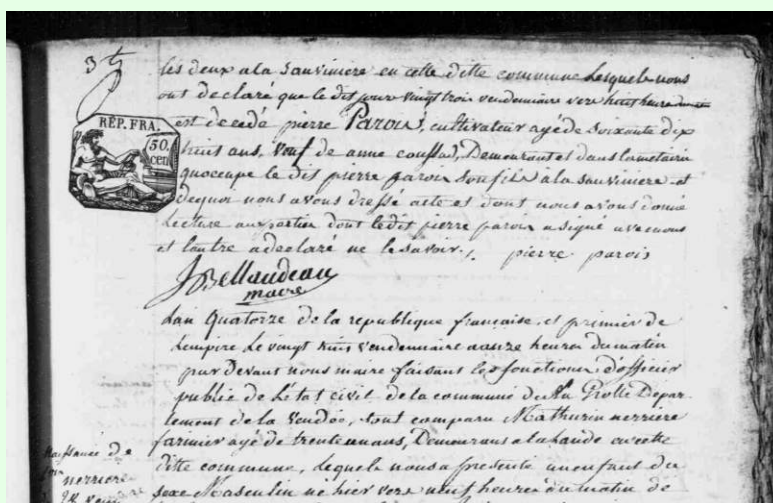 les deux a la Sauviniere en cette ditte commune lesquels nous
ont declaré que le dit jour vingt trois vendemiaire vers huit heure
est decedé pierre Parois, cultivateur agé de soixante dix
huit ans, veuf de anne, Demeurant et dans la metairie
quoccupe le dit pierre parois son fils a la sauviniere et
dequoi nous avons dressé acte et dont nous avons donné
Lecture aux parties dont le dit pierre parois a signé avec nous
et lautre a declaré ne le savoir. pierre parois
JBellaudeau
maire
Lan quatorze de la republique française, et premier de
Lempire le vingt huit vendemiaire a onze heures du matin
par Devant nous maire faisant les fonctions d'officier
public de Letat civil de la commune de Depar-
tement de la vendée, sont comparu Mathurin nerriere
farinier agé de trente un ans, Demeurant a la Lande en cette
ditte commune, lequele nous a presenté un enfant du
sexe Masculin né hier vers neuf heures du matin de
3
RÉP. FRA.
50.
cen
Naissance de
nerriere